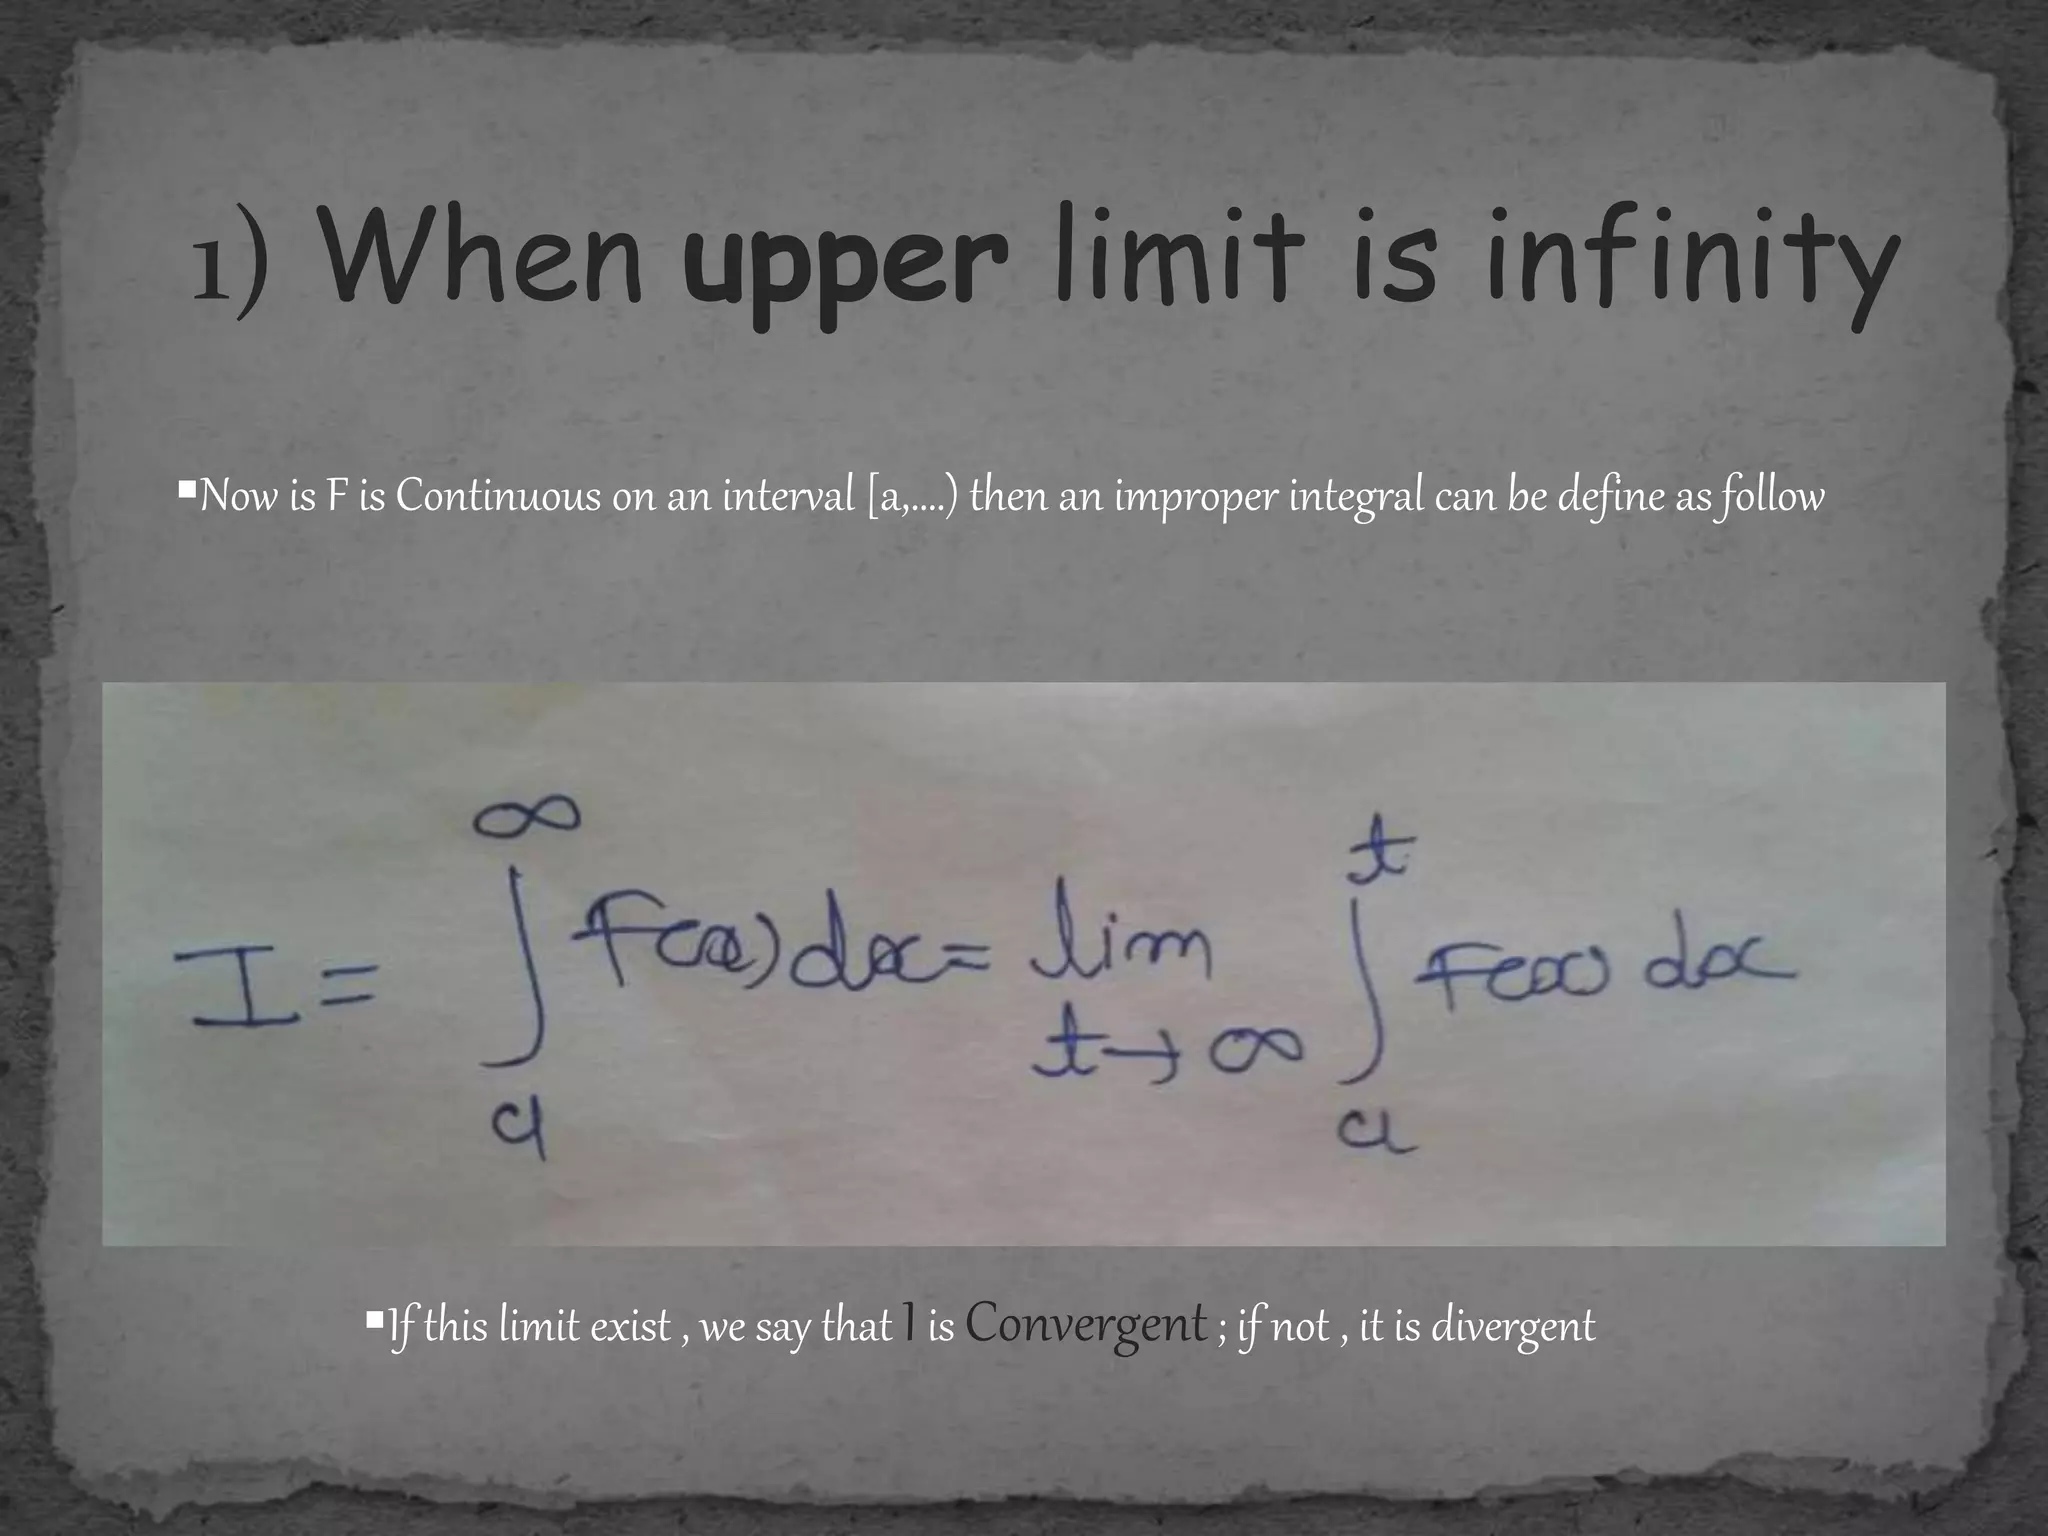 1) When upper limit is infinity
▪Now is F is Continuous on an interval [a,....) then an improper integral can be define as follow
I = ∫_a^∞ F(x) dx = lim_{t→∞} ∫_a^t F(x) dx
▪If this limit exist , we say that I is Convergent ; if not , it is divergent